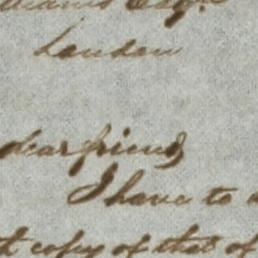 Esqr.
London
dear friend,
I have to
copy of that of